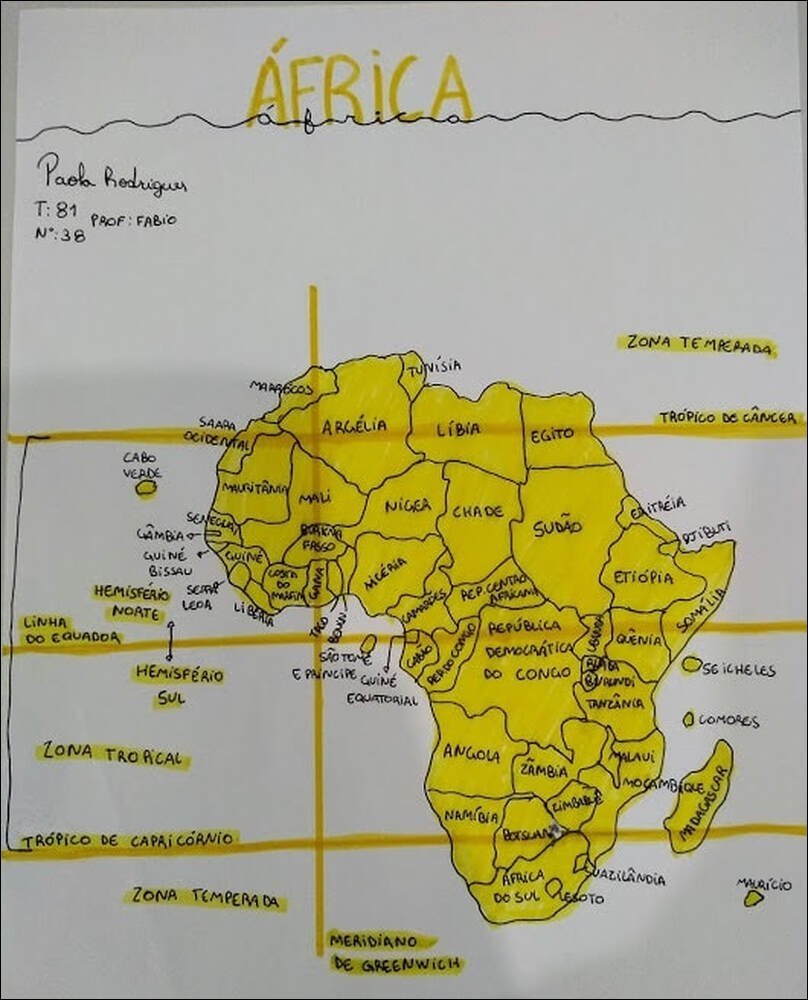 ÁFRICA
áfrica
Paola Rodrigues
T: 81
PROF: FABIO
Nº: 38
ZONA TEMPERADA
TUNÍSIA
MARROCOS
TRÓPICO DE CÂNCER
SAARA
OCIDENTAL
ARGÉLIA
LÍBIA
EGITO
CABO
VERDE
MAURITÂNIA
MALI
NÍGER
CHADE
SUDÃO
ERITRÉIA
DJIBUTI
SENEGAL
GÂMBIA
GUINÉ
BISSAU
GUINÉ
BURKINA
FASSO
NIGÉRIA
ETIÓPIA
SOMÁLIA
SERRA
LEOA
LIBÉRIA
COSTA
DO
MARFIM
GANA
TOGO
BENIN
CAMARÕES
REP. CENTRO
AFRICANA
HEMISFÉRIO
NORTE
LINHA
DO EQUADOR
HEMISFÉRIO
SUL
SÃO TOMÉ
E PRÍNCIPE
GUINÉ
EQUATORIAL
GABÃO
REP. DO CONGO
REPÚBLICA
DEMOCRÁTICA
DO CONGO
UGANDA
QUÊNIA
BURUNDI
TANZÂNIA
SEICHELES
COMORES
ZONA TROPICAL
ANGOLA
ZÂMBIA
MALAUI
MOÇAMBIQUE
MADAGASCAR
NAMÍBIA
ZIMBABUE
TRÓPICO DE CAPRICÓRNIO
ÁFRICA
DO SUL
SUAZILÂNDIA
LESOTO
MAURÍCIO
ZONA TEMPERADA
MERIDIANO
DE GREENWICH